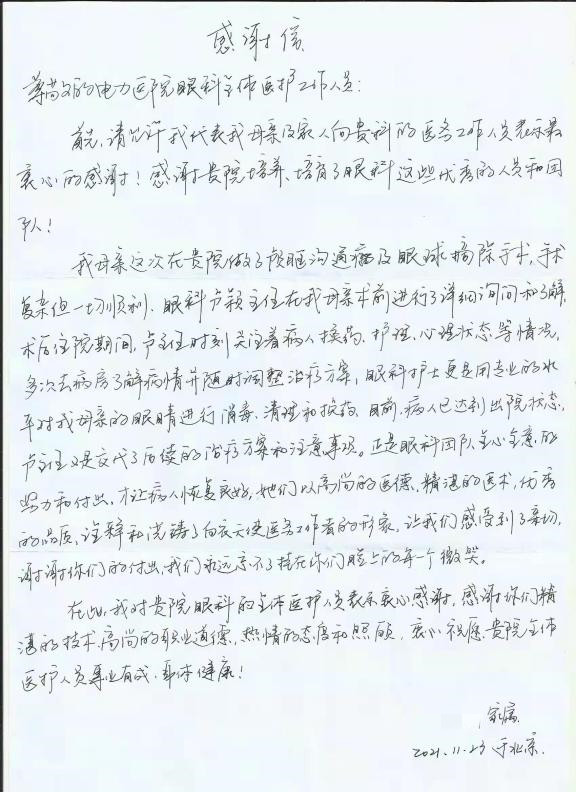 感谢信
尊敬的电力医院眼科全体医护工作人员：
首先，请允许我代表我母亲及家人向贵科的医务工作人员表示最
衷心的感谢！感谢贵院培养、培育了眼科这些优秀的人员和团
队！
我母亲这次在贵院做了颅眶沟通瘤及眼球摘除手术，手术
复杂但一切顺利。眼科卢颖主任在我母亲术前进行了详细询问和了解，
术后住院期间，卢主任时刻关注着病人换药、护理、心理状态等情况，
多次去病房了解病情并随时调整治疗方案，眼科护士更是用专业的水
平对我母亲的眼睛进行消毒、清理和换药。目前，病人已达到出院状态，
卢主任又是交代了后续的治疗方案和注意事项。正是眼科团队全心全意的
努力和付出，才让病人恢复良好，她们以高尚的医德、精湛的医术、优秀
的品质，诠释和洗铸了白衣天使医务工作者的形象，让我们感受到了亲切，
谢谢你们的付出，我们永远忘不了挂在你们脸上的每一个微笑。
在此，我对贵院眼科的全体医护人员表示衷心感谢，感谢你们精
湛的技术、高尚的职业道德，热情的态度和照顾，衷心祝愿贵院全体
医护人员事业有成、身体健康！
家属
2021.11.23 于北京.